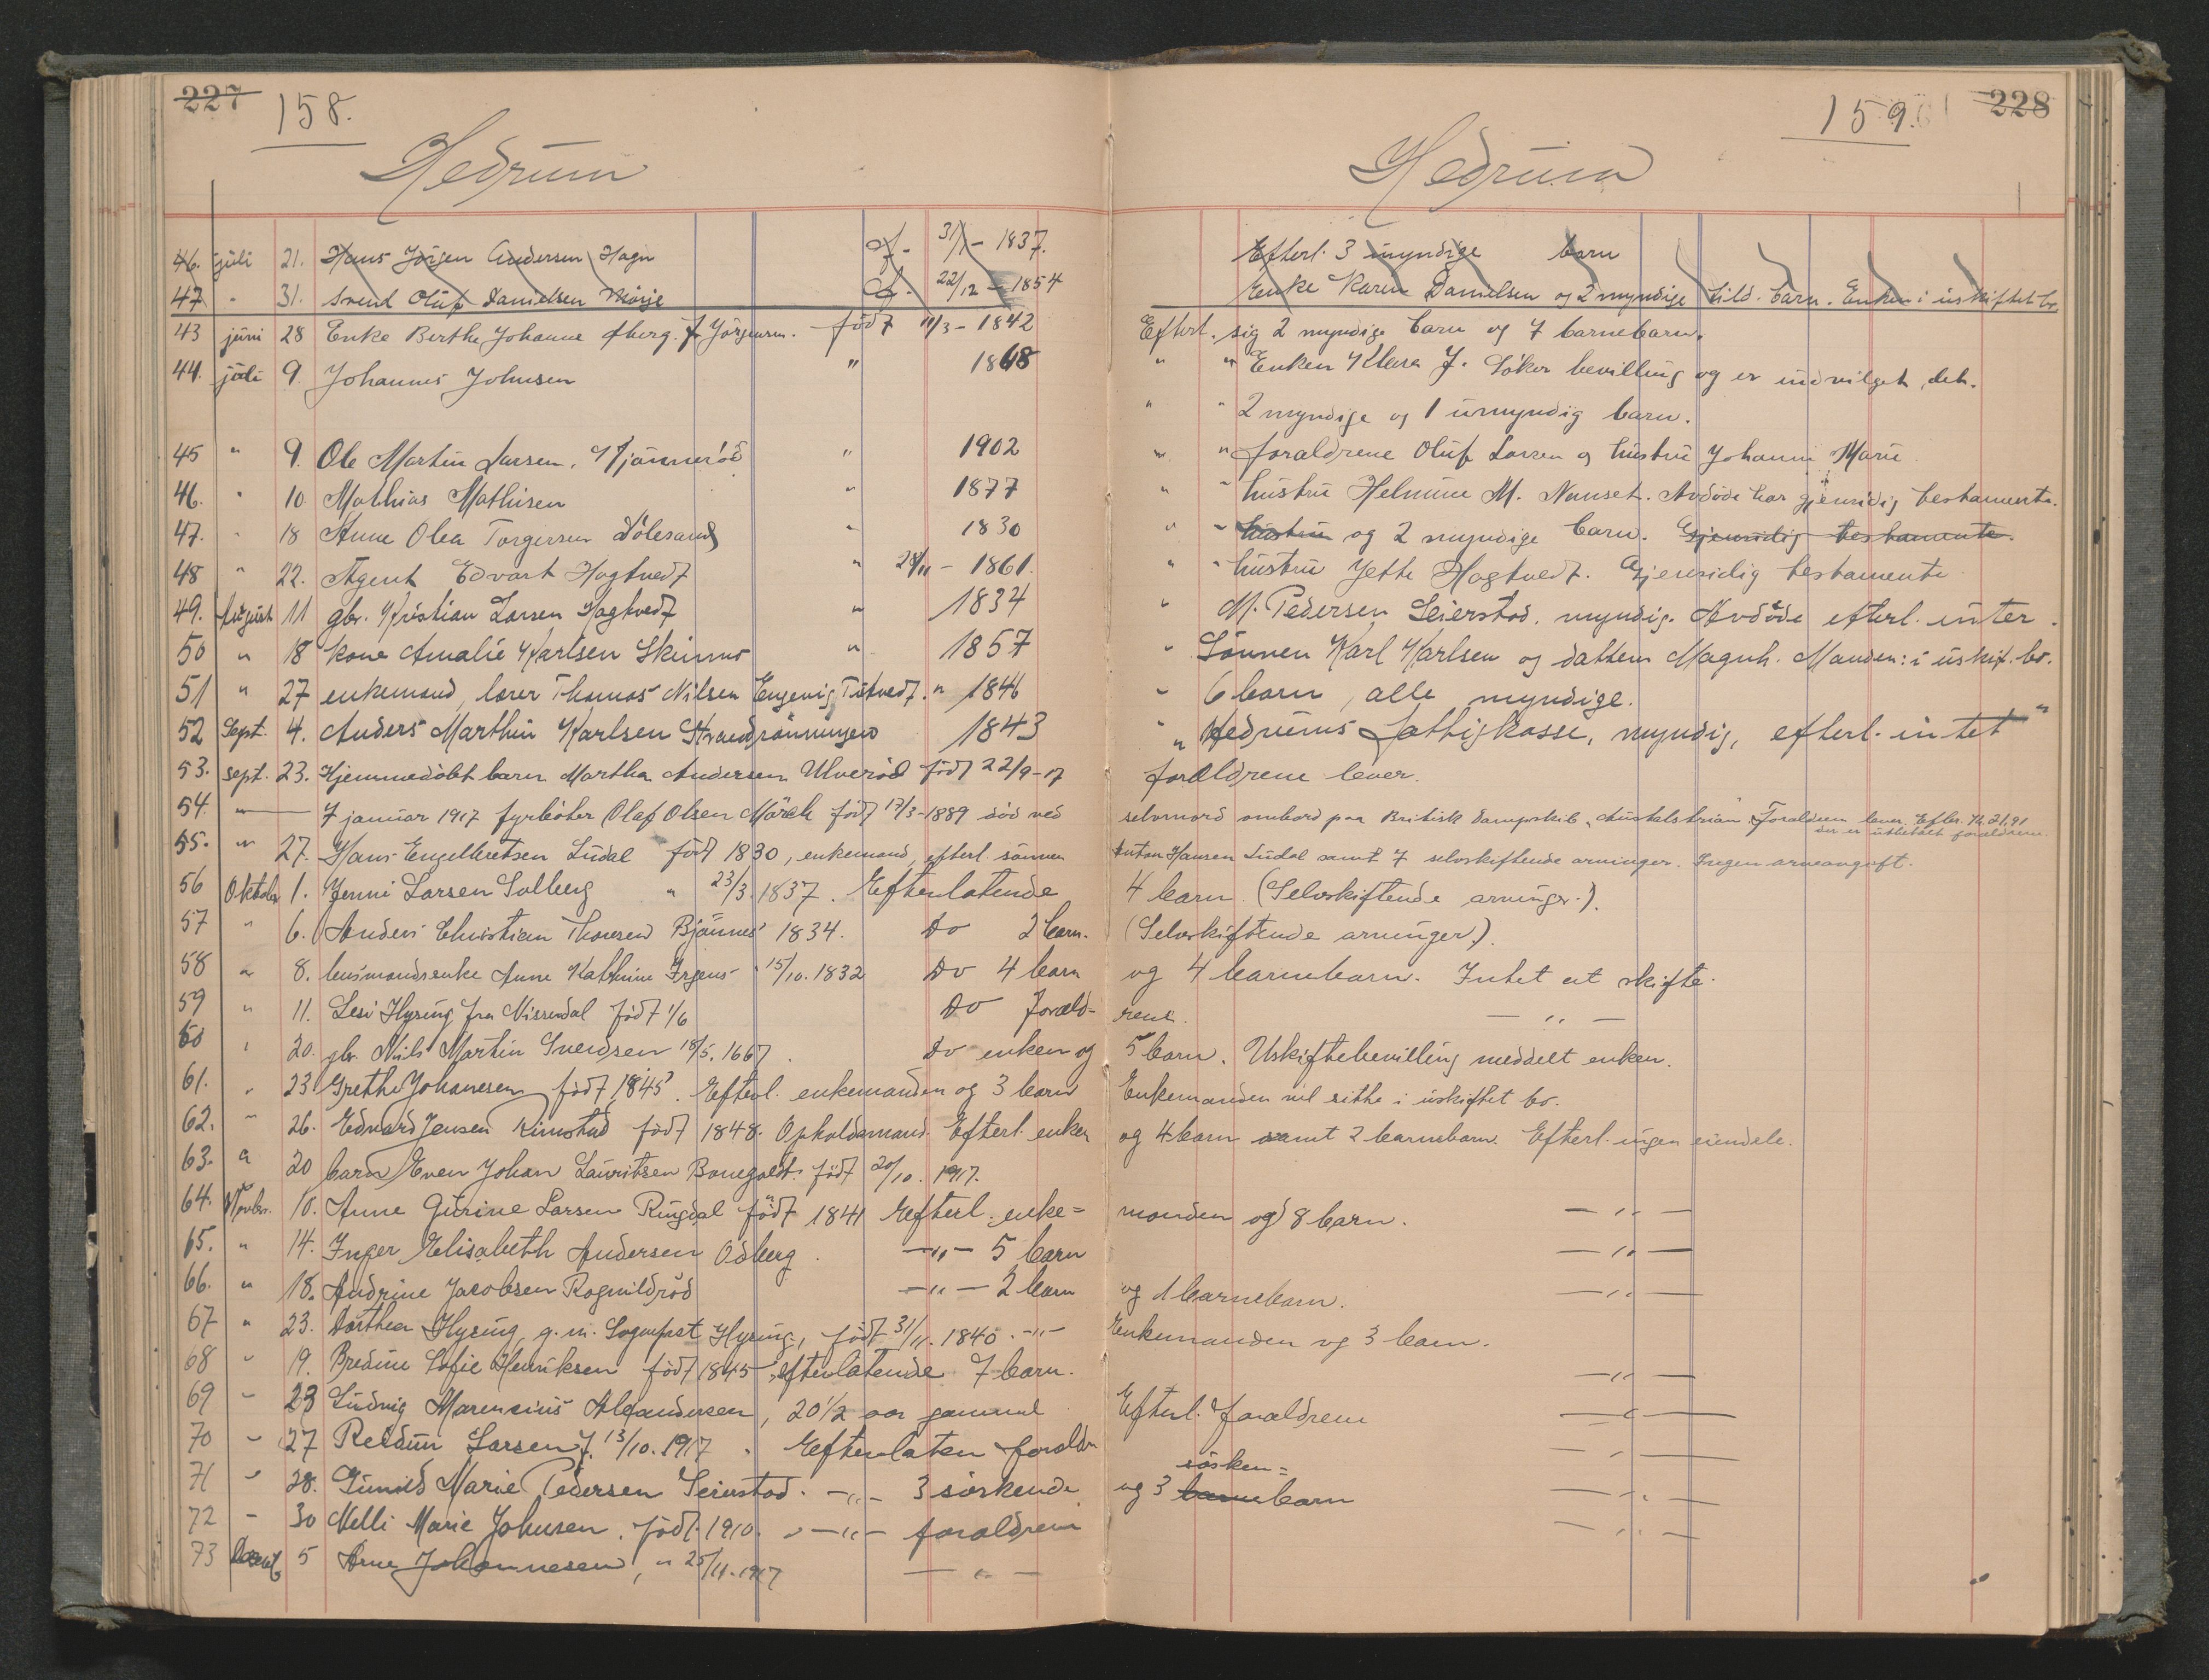 227 158.
Hedrum
46. juli 21. Hans Jörgen Andersen Hagn f. 31/1 - 1837.
47. " 31. Svend Oluf Danielsen f. 22/12 - 1854
43 juni 28 Enke Berthe Johanne født 11/3 - 1842
44. juli 9. Johannes Johnsen " 1868
45 " 9. Ole Martin Larsen, " 1902
46. " 10 Mathias Mathisen " 1877
47. " 18 Anne Olea Torgersen Dölesand " 1830
48 " 22. Agent Edvart Hogtvedt " 28/11 - 1861.
49. August 11 gbr. Kristian Larsen Hogtvedt " 1834
50 " 18 kone Amalie Karlsen Skinmo " 1857
51 " 27 enkemand, lærer Thomas Nilsen Tutvedt. " 1846
52 Sept. 4. Anders Marthin Karlsen 1843
53. sept. 23. Hjemmedøbt barn Martha Andersen Ulveröd født 22/9-17
54. " 7 januar 1917 fyrböter Olaf Olsen Mörch født 17/3-1889 död ved
55. " 27. Hans Engelbretsen Lüdal født 1830, enkemand, efterl. sönnen
56 Oktober 1. Jenni Larsen Solberg " 23/3. 1837. Efterlatende
57 " 6. Anders Christian Thoresen Bjönnes 1834. Do 2 barn.
58 " 8. husmandsenke Anne Kathrine Irgens 15/10. 1832 Do 4 barn
59 " 11. Lesi Hysing fra Nissedal født 1/6 Do foræld-
60 " 20. gbr. Nils Martin Svendsen 18/5. 1667. Do enken og
61. " 23 Grethe Johanesen født 1845. Efterl. enkemanden og 3 barn
62. " 26. Edvard Jensen Rimstad født 1848. Opholdsmand. Efterl. enken
63. " 20 barn Even Johan Lauritsen født 20/10. 1917.
64. Novbr. 10. Anne Gurine Larsen Ringdal født 1841 Efterl. enke=
65. " 14. Inger Elisabeth Andersen Odberg. -"- 5 barn
66. " 18. Andrine Jacobsen Rognildröd -"- 2 barn
67 " 23. Dorthea Hysing, g. m. Sogneprest Hysing, født 31/11. 1840. -"-
68 " 19. Bredine Sofie Henriksen født 1845 efterlatende 7 barn.
69 " 23 Ludvig Marensius Alexandersen, 20 1/2 aar gammel
70 " 27 Reidun Larsen f. 13/10. 1917. Efterlaten foreldr
71 " 28. Gunild Marie Pedersen Seierstad. -"- 3 söskende
72 - 30 Nelli Marie Johnsen. født 1910. " -"- foraldrene
73 5 Arne Johannesen, " 25/11.1917 - " -
159. 228
Hedrum
Efterl. 3 myndige barn
Enke Karen Danielsen og 2 myndige barn. Enken i uskiftet bo
Efterl. sig 2 myndige barn og 7 barnebarn.
" " Enken Klara J. Söker bevilling og er indvilget, det.
" " 2 myndige og 1 umyndig barn.
" " foraldrene Oluf Larsen og hustru Johanne Marie
" " hustru Helmine M. Nanset. Avdöde har gjensidig testamente.
" " hustru og 2 myndige barn. Gjensidig testamente.
" " hustru Jette Hogtvedt. Gjensidig testamente
" M. Pedersen Seierstad. myndig. Avdöde efterl. intet.
" Sönnen Karl Karlsen og datteren Magnh. Manden: i uskift. bo.
" 6 barn, alle myndige.
" Hedrums Fattigkasse, myndig, efterl. intet "
foreldrene lever.
selvmord ombord paa Britisk dampskib Foraldrene lever. Efterl.
der er utbetalt foraldrene.
Anton Hansen Lüdal samt 7 selvskiftende arvinger. Ingen arveavgift.
4 barn. (Selvskiftende arvinger.).
(Selvskiftende arvinger).
og 4 barnebarn. Intet at skifte.
rene. - " -
5 barn. Uskiftebevilling meddelt enken.
Enkemanden vil sitte i uskiftet bo.
og 4 barn samt 2 barnebarn. Efterl. ingen eiendele.
manden og 8 barn. - " -
- " -
og 1 barnebarn. - " -
Enkemanden og 3 barn.
- " -
Efterl. foraldrene - " -
- " -
sösken=
og 3 barnebarn - " -
- " -